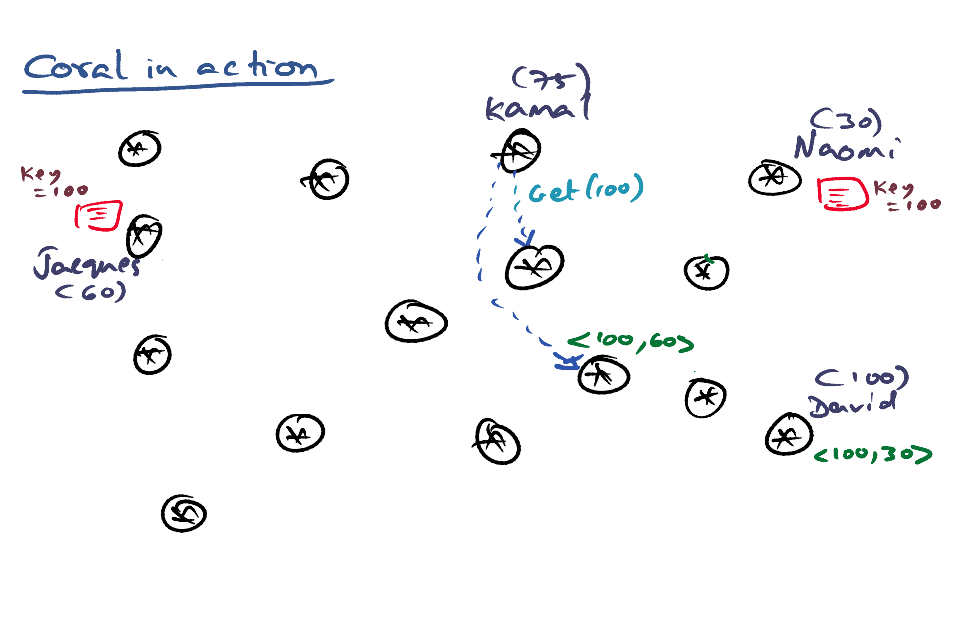 Coral in action
(75)
Kamal
(30)
Naomi
Key
=100
Get(100)
Key
=100
Jacques
(60)
<100,60>
(100)
David
<100,30>